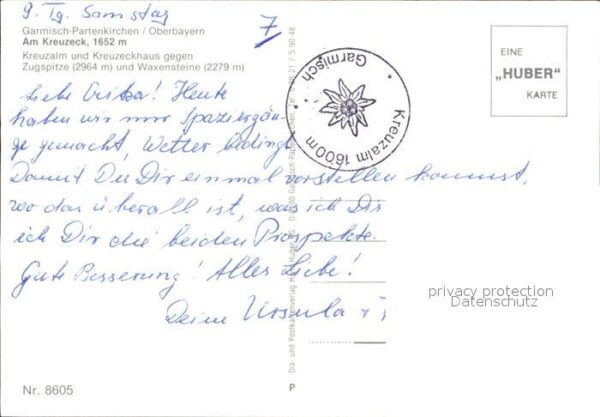 9. Tg. Samstag
7
Garmisch-Partenkirchen / Oberbayern
Am Kreuzeck, 1652 m
Kreuzalm und Kreuzeckhaus gegen
Zugspitze (2964 m) und Waxensteine (2279 m)
Liebe Erika! Heute
haben wir nur Spaziergän-
ge gemacht, Wetter bedingt.
Damit Du Dir einmal vorstellen kannst,
wo das überall ist, was ich Dir
ich Dir die beiden Prospekte.
Gute Besserung! Alles Liebe!
Deine Ursula
Garmisch
Kreuzalm 1600m
EINE
„HUBER"
KARTE
Dia- und Postkartenverlag Huber Garmisch-Partenkirchen
privacy protection
Datenschutz
Nr. 8605
P